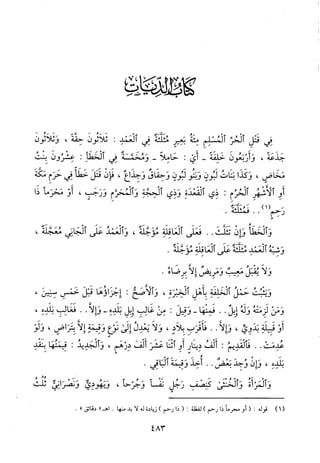 كتاب الديات
في قتل الحر المسلم مئة بعير مثلثة في العمد : ثلاثون حقة ، وثلاثون
جذعة ، وأربعون خلفة - أي : حاملا - ومخمسة في الخطأ : عشرون بنت
مخاض ، وكذا بنات لبون وبنو لبون وحقاق وجذاع ، فإن قتل خطأ في حرم مكة
أو الأشهر الحرم : ذي القعدة وذي الحجة والمحرم ورجب ، أو محرما ذا
رحم (١) .. فمثلثة .
والخطأ وإن تثلث .. فعلى العاقلة مؤجلة ، والعمد على الجاني معجلة ،
وشبه العمد مثلثة على العاقلة مؤجلة .
ولا يقبل معيب ومريض إلا برضاه .
ويثبت حمل الخلفة بأهل الخبرة ، والأصح : إجزاؤها قبل خمس سنين ،
ومن لزمته وله إبل .. فمنها - وقيل : من غالب إبل بلده - وإلا .. فغالب بلده ،
أو قبيلة بدوي ، وإلا .. فأقرب بلاد ، ولا يعدل إلى نوع وقيمة إلا بتراض ، ولو
عدمت .. فالقديم : ألف دينار أو اثنا عشر ألف درهم ، والجديد : قيمتها بنقد
بلده ، وإن وجد بعض .. أخذ وقيمة الباقي .
والمرأة والخنثى كنصف رجل نفسا وجرحا ، ويهودي ونصراني ثلث
(١) قوله : ( أو محرما ذا رحم ) لفظة : ( ذا رحم ) زيادة له لا بد منها . اهـ « دقائق » .
٤٨٣